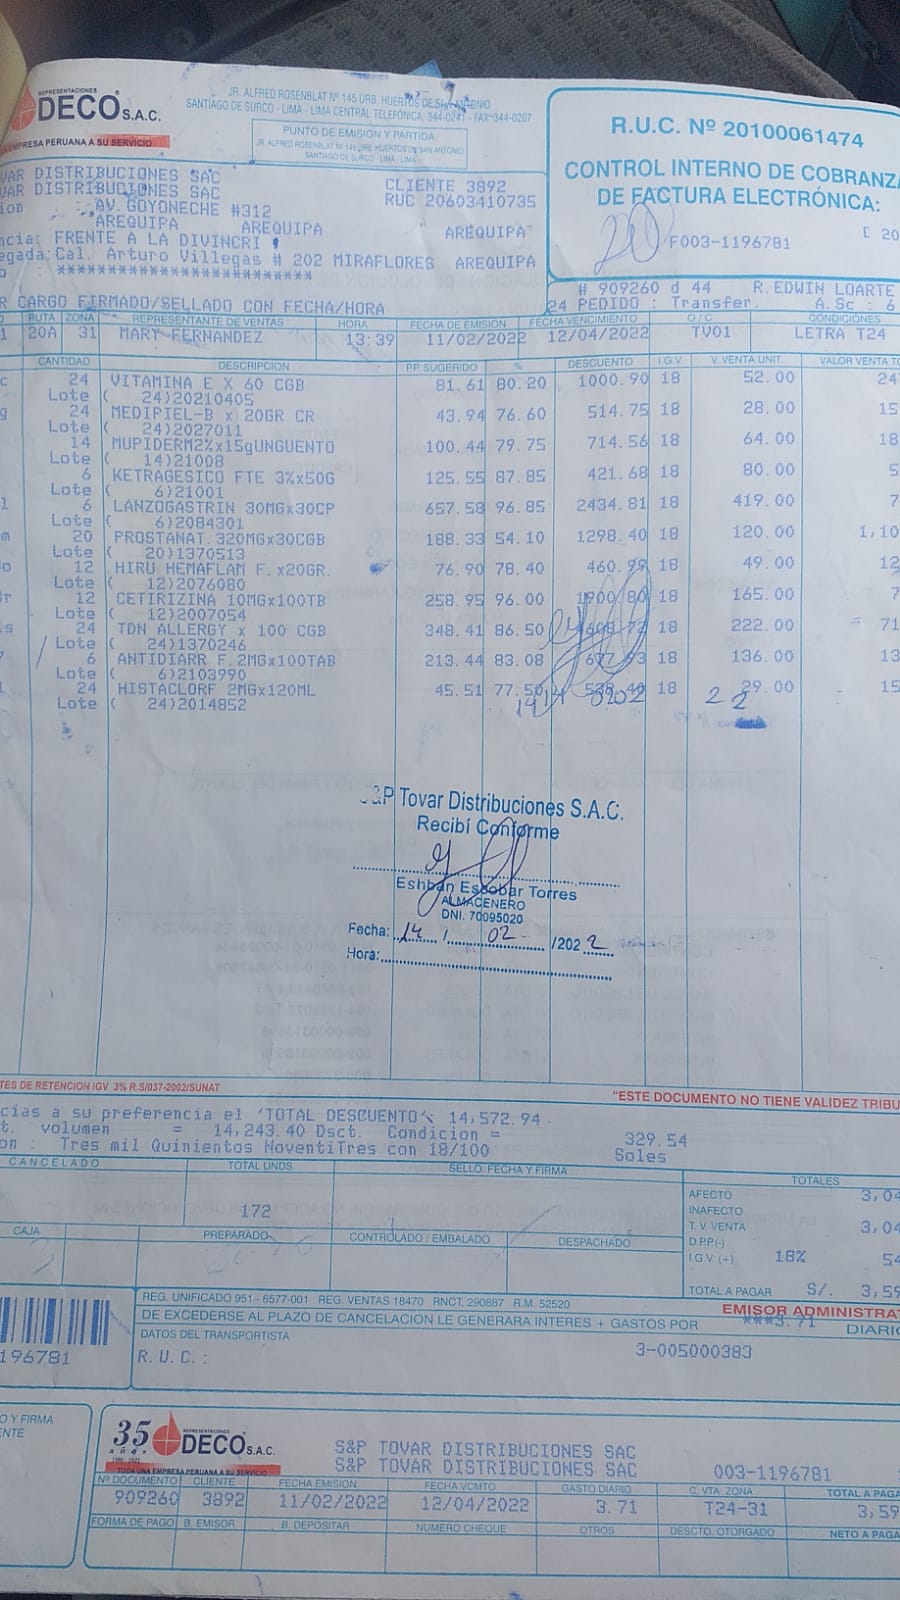 REPRESENTACIONES
DECO S.A.C.
EMPRESA PERUANA A SU SERVICIO
JR. ALFRED ROSENBLAT Nº 145 URB. HUERTOS DE SAN ANTONIO
SANTIAGO DE SURCO - LIMA - LIMA CENTRAL TELEFÓNICA: 344-0241 - FAX: 344-0207
PUNTO DE EMISIÓN Y PARTIDA:
JR. ALFRED ROSENBLAT Nº 145 URB. HUERTOS DE SAN ANTONIO
SANTIAGO DE SURCO - LIMA - LIMA
R.U.C. Nº 20100061474
CONTROL INTERNO DE COBRANZA
DE FACTURA ELECTRÓNICA:
20
F003-1196781 [ 20
VAR DISTRIBUCIONES SAC CLIENTE 3892
VAR DISTRIBUCIONES SAC RUC 20603410735
ion : AV. GOYONECHE #312
AREQUIPA AREQUIPA AREQUIPA
ncia: FRENTE A LA DIVINCRI
egada:Cal. Arturo Villegas # 202 MIRAFLORES AREQUIPA
: ************************
# 909260 d 44 R.EDWIN LOARTE
R CARGO FIRMADO/SELLADO CON FECHA/HORA 24 PEDIDO : Transfer. A.Sc : 6
RUTA ZONA REPRESENTANTE DE VENTAS HORA FECHA DE EMISION FECHA VENCIMIENTO O / C CONDICIONES
1 20A 31 MARY FERNANDEZ 13:39 11/02/2022 12/04/2022 TV01 LETRA T24
CANTIDAD DESCRIPCION P.P. SUGERIDO % DESCUENTO I.G.V V. VENTA UNIT. VALOR VENTA TO
c 24 VITAMINA E X 60 CGB 81.61 80.20 1000.90 18 52.00 24
Lote ( 24)20210405
g 24 MEDIPIEL-B x 20GR CR 43.94 76.60 514.75 18 28.00 15
Lote ( 24)2027011
14 MUPIDERM2%x15gUNGUENTO 100.44 79.75 714.56 18 64.00 18
Lote ( 14)21008
6 KETRAGESICO FTE 3%x50G 125.55 87.85 421.68 18 80.00 5
Lote ( 6)21001
l 6 LANZOGASTRIN 30MGx30CP 657.58 96.85 2434.81 18 419.00 7
Lote ( 6)2084301
m 20 PROSTANAT 320MGx30CGB 188.33 54.10 1298.40 18 120.00 1,10
Lote ( 20)1370513
o 12 HIRU HEMAFLAM F. x20GR. 76.90 78.40 460.99 18 49.00 12
Lote ( 12)2076080
r 12 CETIRIZINA 10MGx100TB 258.95 96.00 1900.80 18 165.00 7
Lote ( 12)2007054
s 24 TDN ALLERGY x 100 CGB 348.41 86.50 18 222.00 71
Lote ( 24)1370246
6 ANTIDIARR F.2MGx100TAB 213.44 83.08 677.93 18 136.00 13
Lote ( 6)2103990
24 HISTACLORF 2MGx120ML 45.51 77.50 18 29.00 15
Lote ( 24)2014852
14/ 0202 22
S&P Tovar Distribuciones S.A.C.
Recibí Conforme
Eshban Escobar Torres
ALMACENERO
DNI. 70095020
Fecha: 14 / 02 /2022
Hora:
TES DE RETENCION IGV 3% R.S/037-2002/SUNAT
"ESTE DOCUMENTO NO TIENE VALIDEZ TRIBU
cias a su preferencia el 'TOTAL DESCUENTO': 14,572.94
t. volumen = 14,243.40 Dsct. Condicion = 329.54
on : Tres mil Quinientos NoventiTres con 18/100 Soles
CANCELADO TOTAL UNDS. SELLO, FECHA Y FIRMA TOTALES
172
AFECTO 3,04
INAFECTO
T. V VENTA 3,04
D.P.P.(-)
I.G.V. (+) 18% 54
TOTAL A PAGAR S/. 3,59
CAJA PREPARADO CONTROLADO / EMBALADO DESPACHADO
REG. UNIFICADO 951 - 6577-001 REG. VENTAS 18470 RNCT. 290887 R.M. 52520
EMISOR ADMINISTRAT
DE EXCEDERSE AL PLAZO DE CANCELACION LE GENERARA INTERES + GASTOS POR ***3.71 DIARIO
DATOS DEL TRANSPORTISTA
R. U. C. : 3-005000383
196781
O Y FIRMA
ENTE
35 años
REPRESENTACIONES
DECO S.A.C.
TODA UNA EMPRESA PERUANA A SU SERVICIO
S&P TOVAR DISTRIBUCIONES SAC
S&P TOVAR DISTRIBUCIONES SAC
003-1196781
Nº DOCUMENTO CLIENTE FECHA EMISION FECHA VCMTO GASTO DIARIO C. VTA. ZONA TOTAL A PAGA
909260 3892 11/02/2022 12/04/2022 3.71 T24-31 3,59
FORMA DE PAGO B. EMISOR B. DEPOSITAR NUMERO CHEQUE OTROS DESCTO. OTORGADO NETO A PAGA